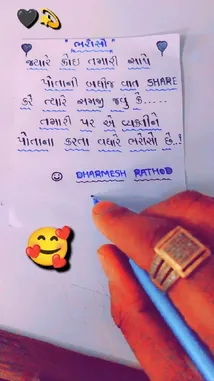 " ભરોસો "
જ્યારે કોઇ તમારી સાથે
પોતાની બધીજ વાત SHARE
કરે ત્યારે સમજી જવુ કે.....
તમારી પર એ વ્યક્તીને
પોતાના કરતા વધારે ભરોસો છે..!
DHARMESH RATHOD